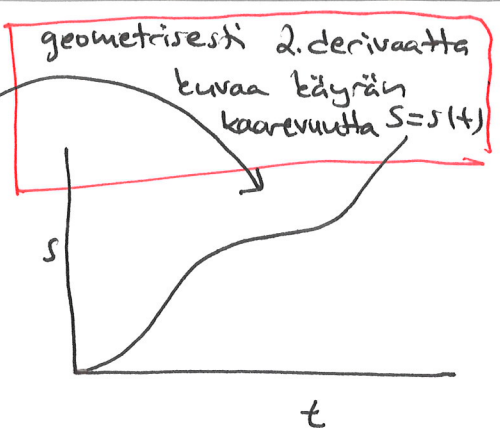 geometrisesti 2. derivaatta
kuvaa käyrän
kaarevuutta s=s(t)
s
t